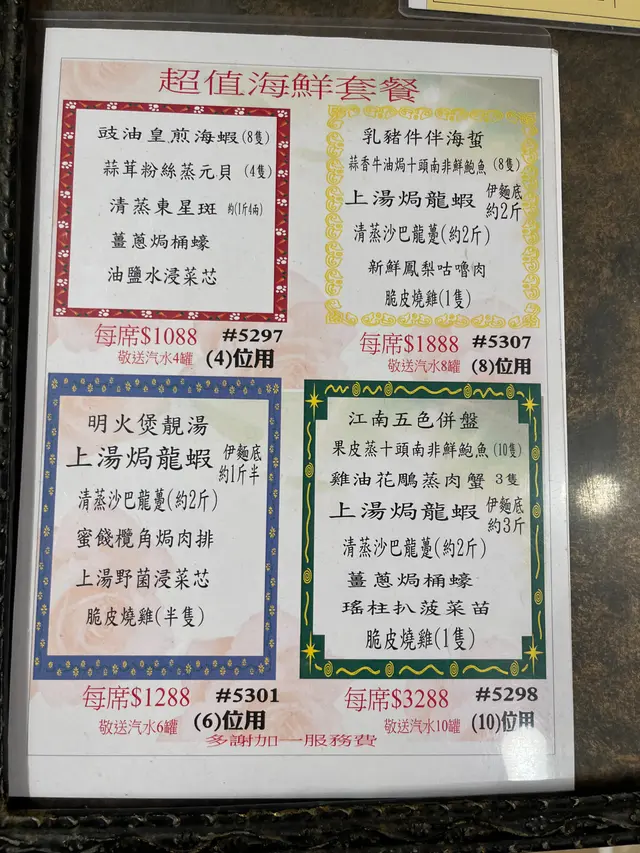 超值海鮮套餐
豉油皇煎海蝦(8隻)
蒜茸粉絲蒸元貝(4隻)
清蒸東星斑 約(1斤4兩)
薑蔥焗桶蠔
油鹽水浸菜芯
每席$1088 #5297
敬送汽水4罐 (4)位用
乳豬件伴海蜇
蒜香牛油焗十頭南非鮮鮑魚(8隻)
上湯焗龍蝦 伊麵底 約2斤
清蒸沙巴龍躉(約2斤)
新鮮鳳梨咕嚕肉
脆皮燒雞(1隻)
每席$1888 #5307
敬送汽水8罐 (8)位用
明火煲靚湯
上湯焗龍蝦 伊麵底 約1斤半
清蒸沙巴龍躉(約2斤)
蜜餞欖角焗肉排
上湯野菌浸菜芯
脆皮燒雞(半隻)
每席$1288 #5301
敬送汽水6罐 (6)位用
江南五色併盤
果皮蒸十頭南非鮮鮑魚(10隻)
雞油花鵰蒸肉蟹 3隻
上湯焗龍蝦 伊麵底 約3斤
清蒸沙巴龍躉(約2斤)
薑蔥焗桶蠔
瑤柱扒菠菜苗
脆皮燒雞(1隻)
每席$3288 #5298
敬送汽水10罐 (10)位用
多謝加一服務費